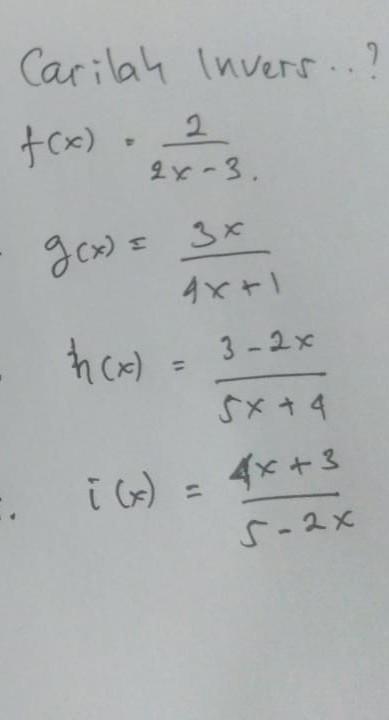 Carilah Invers..?
f(x) = 2/(2x-3).
g(x) = 3x/(4x+1)
h(x) = (3-2x)/(5x+4)
i(x) = (4x+3)/(5-2x)